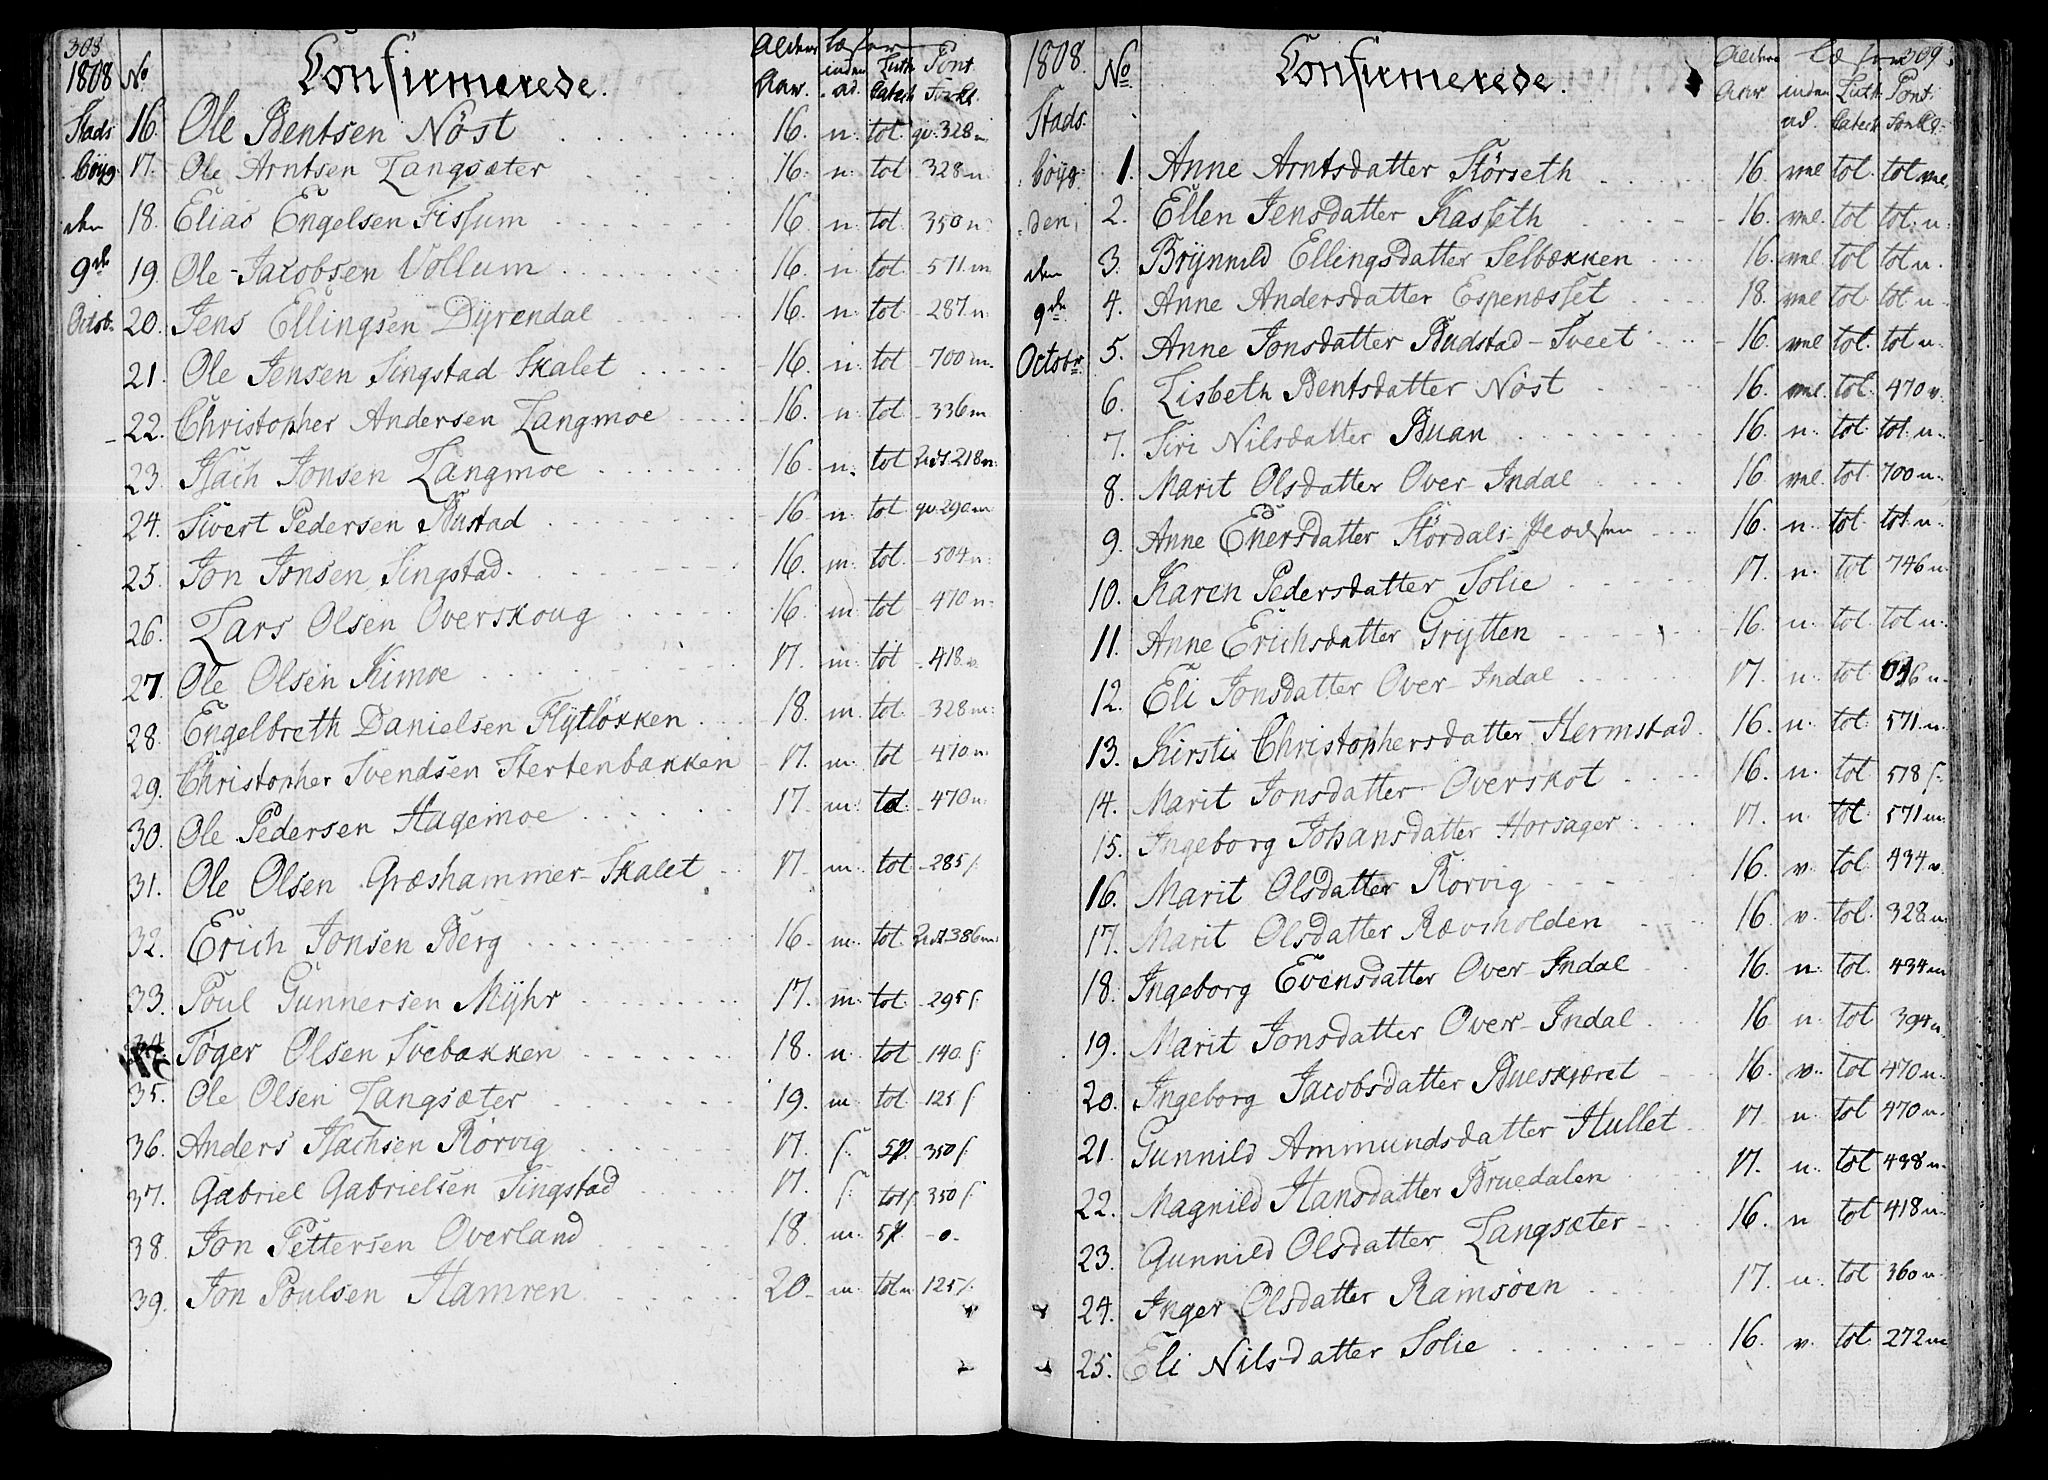 308
1808 No Confirmerede. Alder Aar. læser inden ad. Luth. Catech. Pont. Forkl.
Stads 16. Ole Bentsen Nöst 16. n. tot. qv. 328 n.
böyg 17. Ole Arntsen Langsæter 16. n. tot. 328 n.
den 18. Elias Engelsen Fissum 16 n. tot. 350 n.
9de 19. Ole Jacobsen Vollum 16. n. tot. 571. m
Octob. 20. Jens Ellingsen Dÿrendal 16. n. tot. 287. n.
21. Ole Jensen Singstad Skalet 16. n. tot 700 m.
22. Christopher Andersen Langmoe 16. n. tot. 336 m
23. Isach Jonsen Langmoe 16. n. tot 218 n.
24. Sivert Pedersen Rustad 16. n. tot. qv. 290 m.
25. Jon Jonsen Singstad. 16. m. tot. 504 n.
26. Lars Olsen Overskoug 16. m. tot 470 n.
27. Ole Olsen Kimoe 17. m. tot 418 v.
28. Engelbreth Danielsen Flÿtlökken 18. m. tot. 328 m.
29. Christopher Svendsen Stertenbakken 17. m. tot 470 n.
30. Ole Pedersen Hagemoe 17 m. tot. 470 n.
31. Ole Olsen Græshammer-Skalet 17. m. tot. 285 f.
32. Erich Jonsen Berg 16. m. tot. 386 m
33. Poul Gunnersen Mÿhr 17. m. tot. 295 f.
34. Töger Olsen Svebakken 18. n. tot 140. f.
35. Ole Olsen Langsæter 19. m. tot 125 f
36. Anders Isachsen Rörvig 17. f. 5 p. 350 f.
37. Gabriel Gabrielsen Singstad 17. f. tot f. 350 f.
38. Jon Pettersen Overland 18. m. 5 p. -0-
39. Jon Poulsen Hamren 20. m. tot n. 125 f.
309.
1808. No. Confirmerede. Alder Aar. læser inden ad. Luth. Catech. Pont. Forkl.
Stads
böyg 1. Anne Arntsdatter Störseth 16. vel tot. tot vel.
den 2. Ellen Jensdatter Kasseth 16. vel. tot tot. n.
den 3. Brÿnnild Ellingsdatter Selbækken 16. vel. tot tot n.
9de 4. Anne Andersdatter Espenæsset 18. vel tot. tot n.
Octobr. 5. Anne Jonsdatter Rudstad-Sveet 16. vel tot. tot n.
6. Lisbeth Bentsdatter Nöst 16. vel. tot. 470 v.
7. Siri Nilsdatter Buan 16. n. tot tot. n.
8. Marit Olsdatter Over-Indal 16. vel. tot 700 n.
9. Anne Enersdatter Stördals- 16. n. tot. tot. n.
10. Karen Pedersdatter Solie 17. n. tot 746 n.
11. Anne Erichsdatter Grÿtten 16. n. tot tot n.
12. Eli Jonsdatter Over-Indal 17. n. tot n.
13. Kirsti Christophersdatter Hermstad. 16. n. tot. 571. n.
14. Marit Jonsdatter Overskot 16. n. tot 518 f.
15. Ingeborg Johansdatter Horsager 17. n. tot. 571 m.
16. Marit Olsdatter Rörvig 16. v. tot. 434 v.
17. Marit Olsdatter Rævsholden 16 v. tot. 328. n.
18. Ingeborg Evensdatter Over-Indal 16. n. tot. 434 m
19. Marit Jonsdatter Over-Indal 16. n. tot 394 n.
20. Ingeborg Jacobsdatter Bueskjæret 16. v. tot 470 n.
21. Gunnild Ammundsdatter Hullet 17. n. tot 470 n.
22. Magnild Hansdatter Bruedalen 17. n. tot 438 n.
23. Gunnild Olsdatter Langsæter 16. n tot 418 n.
24. Inger Olsdatter Ramsöen 17. n. tot 360 n.
25. Eli Nilsdatter Solie 16. v. tot. 272 m